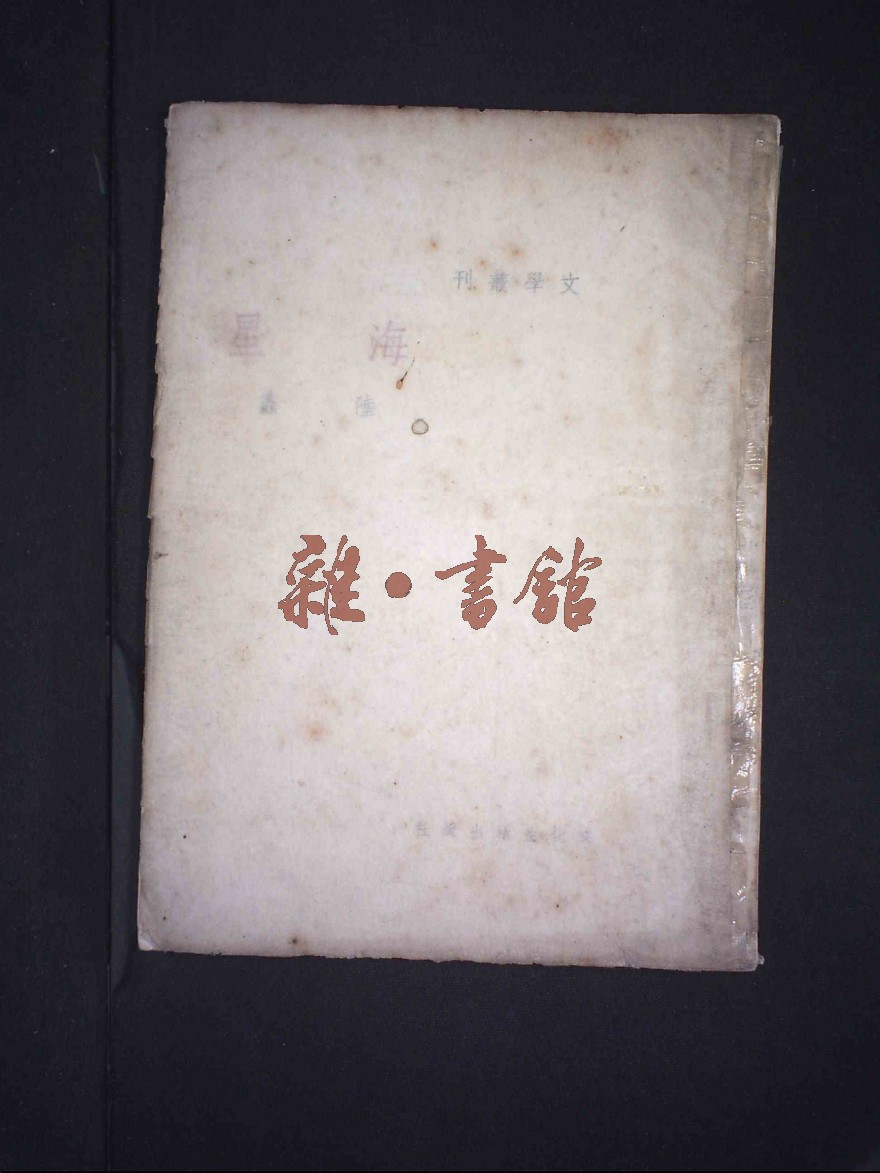 文學叢刊
海星
陸蠡
雜·書館
文化生活出版社